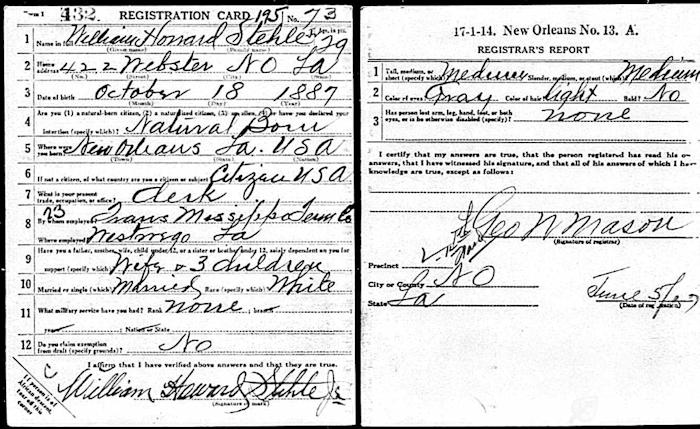 Form 1 432 REGISTRATION CARD 195 No. 73
1 Name in full William Howard Stehle Jr Age, in yrs. 29
(Given name) (Family name)
2 Home address 422 Webster NO La
(No.) (Street) (City) (State)
3 Date of birth October 18 1887
(Month) (Day) (Year)
4 Are you (1) a natural-born citizen, (2) a naturalized citizen, (3) an alien, (4) or have you declared your
intention (specify which)? Natural Born
5 Where were you born? New Orleans La. USA
(Town) (State) (Nation)
6 If not a citizen, of what country are you a citizen or subject? Citizen USA
7 What is your present trade, occupation, or office? Clerk
23
8 By whom employed? Trans Mississippi Term Co
Where employed? Westwego La
9 Have you a father, mother, wife, child under 12, or a sister or brother under 12, solely dependent on you for
support (specify which)? Wife & 3 Children
10 Married or single (which)? Married Race (specify which)? White
11 What military service have you had? Rank none ; branch
years ; Nation or State
12 Do you claim exemption from draft (specify grounds)? No
I affirm that I have verified above answers and that they are true.
William Howard Stehle Jr
(Signature or mark)
If person is of African descent, tear off this corner
17-1-14. New Orleans No. 13. A.
REGISTRAR'S REPORT
1 Tall, medium, or short (specify which)? Medium Slender, medium, or stout (which)? Medium
2 Color of eyes? Gray Color of hair? light Bald? No
3 Has person lost arm, leg, hand, foot, or both
eyes, or is he otherwise disabled (specify)? none
I certify that my answers are true, that the person registered has read his own
answers, that I have witnessed his signature, and that all of his answers of which I have
knowledge are true, except as follows:
Geo W Mason
(Signature of registrar)
Precinct
City or County NO
State La
June 5/17
(Date of registration)